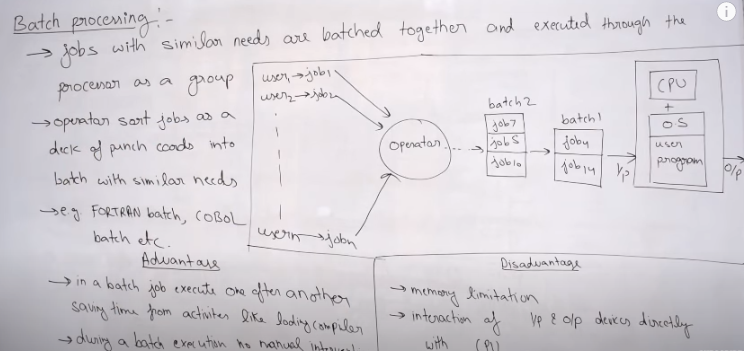 Batch processing:-
→ jobs with similar needs are batched together and executed through the
processor as a group
→ operator sort jobs as a
deck of punch cards into
batch with similar needs
→ e.g FORTRAN batch, COBOL
batch etc.
user1 → job1
user2 → job2
usern → jobn
Operator
batch2
job7
job5
job10
batch1
job4
job14
I/p
CPU
+
OS
user
program
O/p
Advantage
→ in a batch job execute one after another
saving time from activites like loding compiler
→ during a batch execution no manual
Disadvantage
→ memory limitation
→ interaction of I/p & o/p devices directly
with CPU